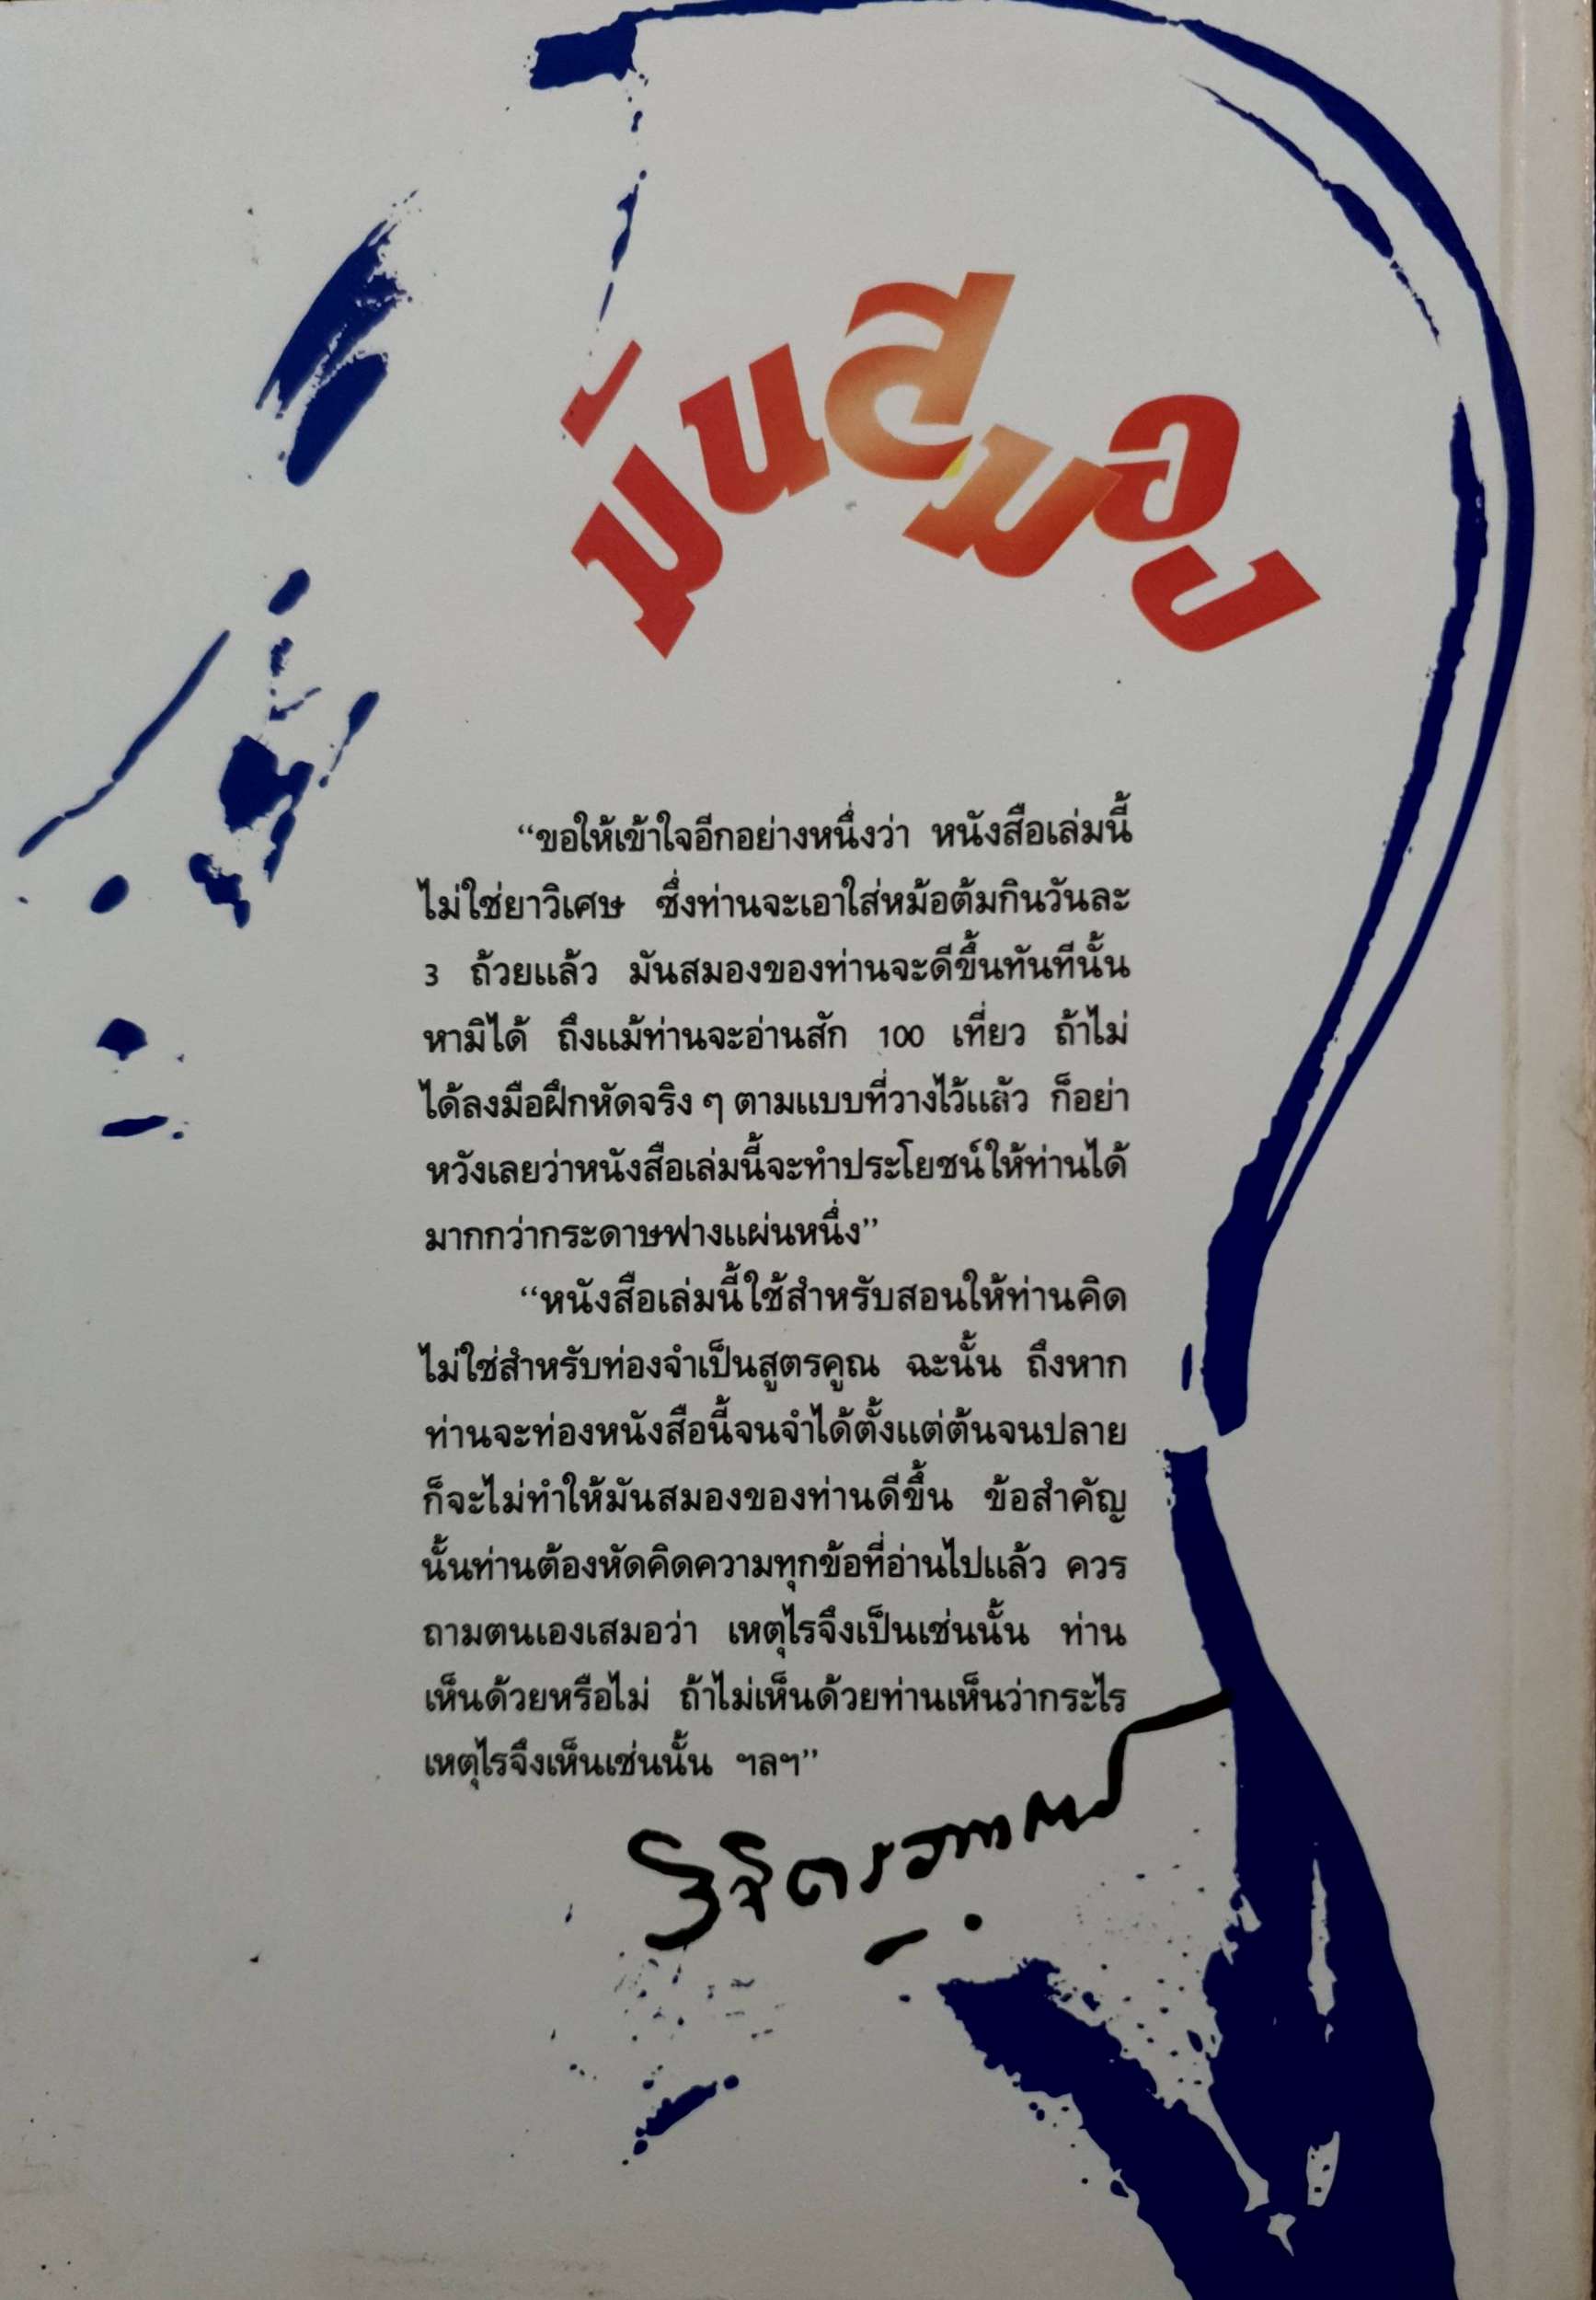 มันสมอง
“ขอให้เข้าใจอีกอย่างหนึ่งว่า หนังสือเล่มนี้
ไม่ใช่ยาวิเศษ ซึ่งท่านจะเอาใส่หม้อต้มกินวันละ
3 ถ้วยแล้ว มันสมองของท่านจะดีขึ้นทันทีนั้น
หามิได้ ถึงแม้ท่านจะอ่านสัก 100 เที่ยว ถ้าไม่
ได้ลงมือฝึกหัดจริง ๆ ตามแบบที่วางไว้แล้ว ก็อย่า
หวังเลยว่าหนังสือเล่มนี้จะทำประโยชน์ให้ท่านได้
มากกว่ากระดาษฟางแผ่นหนึ่ง”
“หนังสือเล่มนี้ใช้สำหรับสอนให้ท่านคิด
ไม่ใช่สำหรับท่องจำเป็นสูตรคูณ ฉะนั้น ถึงหาก
ท่านจะท่องหนังสือนี้จนจำได้ตั้งแต่ต้นจนปลาย
ก็จะไม่ทำให้มันสมองของท่านดีขึ้น ข้อสำคัญ
นั้นท่านต้องหัดคิดความทุกข้อที่อ่านไปแล้ว ควร
ถามตนเองเสมอว่า เหตุไรจึงเป็นเช่นนั้น ท่าน
เห็นด้วยหรือไม่ ถ้าไม่เห็นด้วยท่านเห็นว่ากระไร
เหตุไรจึงเห็นเช่นนั้น ฯลฯ”
วิจิตรวาทการ